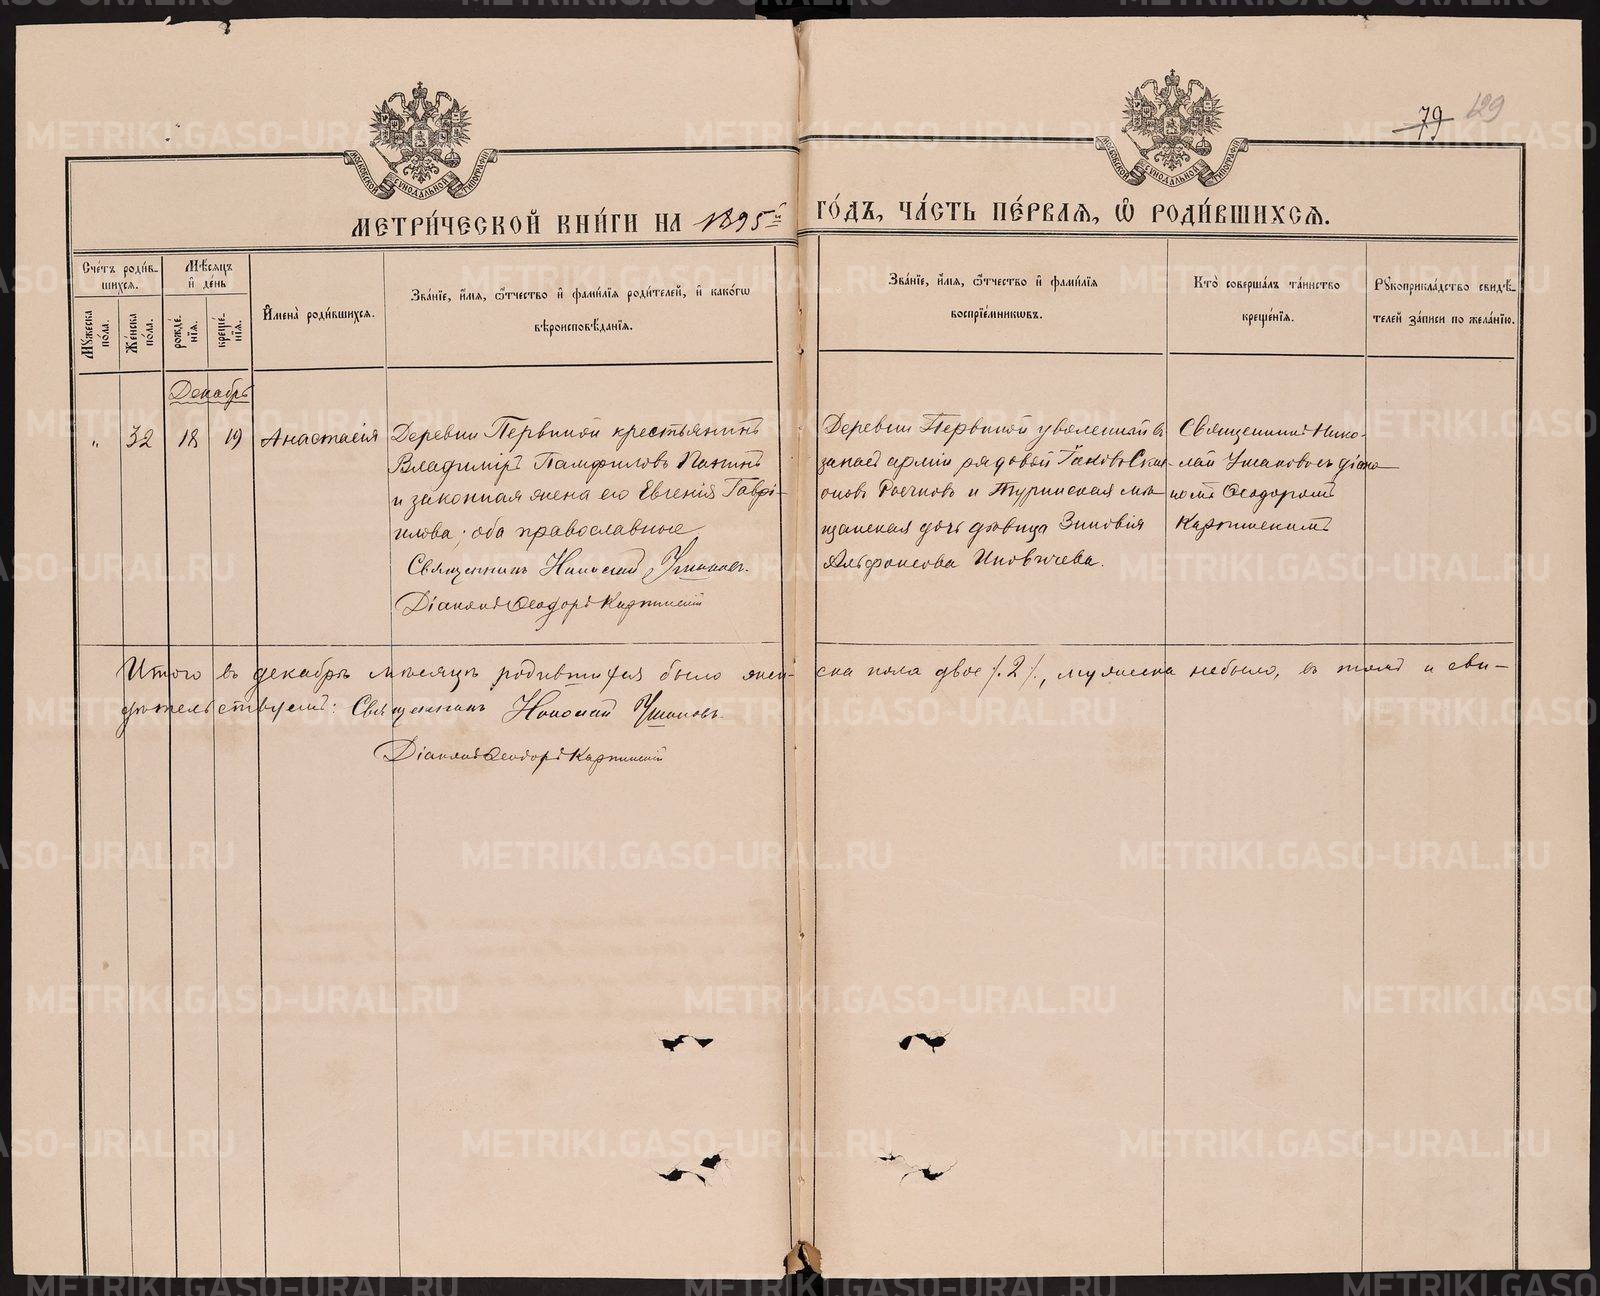 79 129
МОСКОВСКОЙ СѴНОДАЛЬНОЙ ТИПОГРАФІИ
МОСКОВСКОЙ СѴНОДАЛЬНОЙ ТИПОГРАФІИ
МЕТРИ́ЧЕСКОЙ КНИ́ГИ НА 1895й ГО́ДЪ, ЧА́СТЬ ПЕ́РВАѦ, Ѽ РОДИ́ВШИХСѦ.
Сче́тъ роди́в-
шихсѧ.
Мꙋ́жеска по́ла.
Же́нска по́ла.
Мѣ́сѧцъ
и҆ де́нь
рожде́нїѧ.
креще́нїѧ.
И҆мена̀ роди́вшихсѧ.
Зва́нїе, и҆́мѧ, ѻ҆́тчество и҆ фами́лїѧ роди́телей, и҆ како́гѡ
вѣроисповѣ́данїѧ.
Зва́нїе, и҆́мѧ, ѻ҆́тчество и҆ фами́лїѧ
воспрїе́мникѡвъ.
Кто̀ соверша́лъ та́инство
креще́нїѧ.
Рꙋкоприкла́дство свидѣ́-
телей за́писи по жела́нїю.
Декабрь
„ 32 18 19 Анастасія
Деревни Первиной крестьянинъ
Владиміръ Памфиловъ Панинъ
и законная жена его Евгенія Гаврі-
илова; оба православные
Священникъ Николай Ушаковъ.
Діаконъ Ѳеодоръ Карпинскій
Деревни Первиной уволенный в
запасъ арміи рядовой Іаковъ
и Туринская мѣ-
щанская дочь дѣвица Зиновія
Альфонсова
Священникъ Нико-
лай Ушаковъ съ діако-
номъ Ѳеодоромъ
Карпинскимъ
Итого въ декабрѣ мѣсяцѣ родившихся было жен- ска пола двое /.2/., мужеска небыло, въ томъ и сви-
дѣтельствуемъ: Священникъ Николай Ушаковъ.
Діаконъ Ѳеодоръ Карпинскій
METRIKI.GASO-URAL.RU